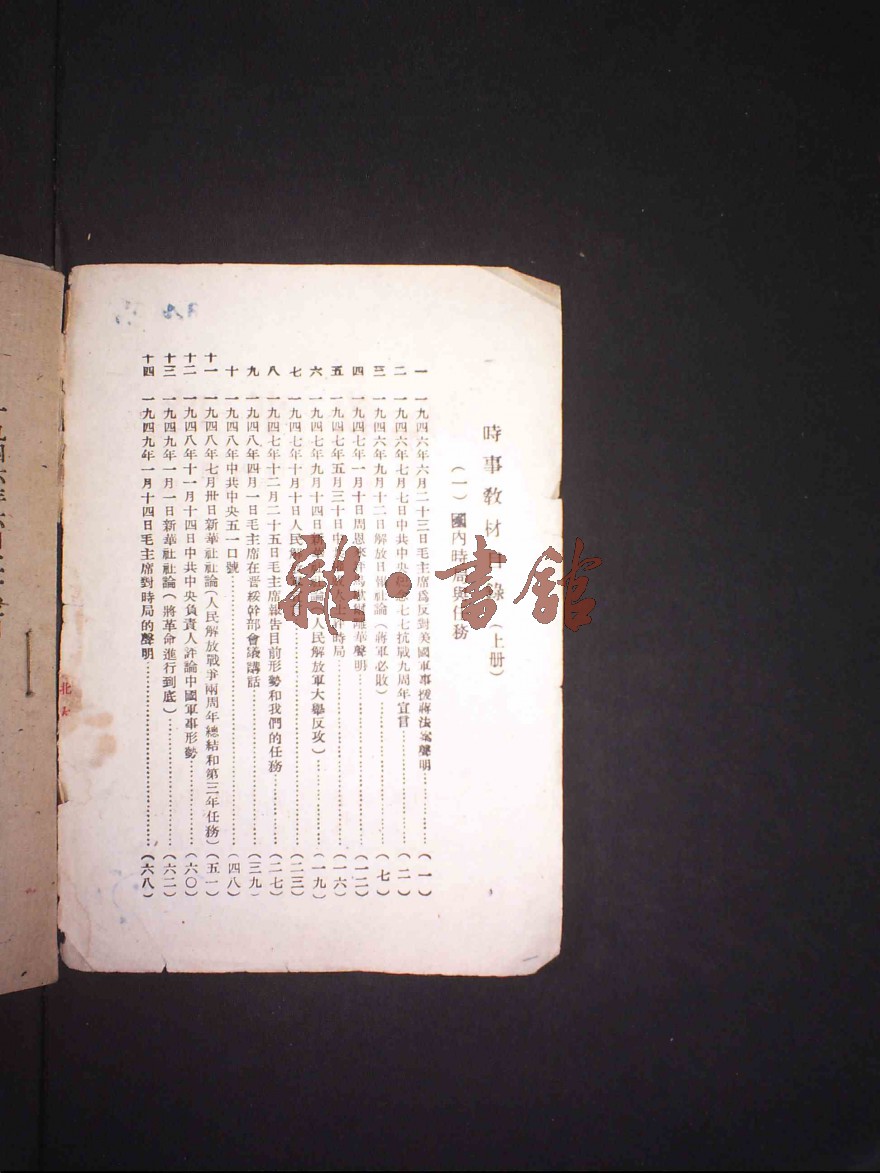 時事教材目錄(上册)
(一)國內時局與任務
一 一九四六年六月二十三日毛主席爲反對美國軍事援蔣法案聲明……(一)
二 一九四六年七月七日中共中央 七七抗戰九周年宣言……(二)
三 一九四六年九月十二日解放日報社論(蔣軍必敗)……(七)
四 一九四七年一月十日周恩來 離華聲明……(一二)
五 一九四七年五月三十日 時局……(一六)
六 一九四七年九月十四日新華社社論(人民解放軍大舉反攻)……(一九)
七 一九四七年十月十日人民解 ……(二三)
八 一九四七年十二月二十五日毛主席報告目前形勢和我們的任務……(二七)
九 一九四八年四月一日毛主席在晋綏幹部會議講話……(三九)
十 一九四八年中共中央五一口號……(四八)
十一 一九四八年七月卅日新華社社論(人民解放戰爭兩周年總結和第三年任務)(五一)
十二 一九四八年十一月十四日中共中央負責人評論中國軍事形勢……(六〇)
十三 一九四九年一月一日新華社社論(將革命進行到底)……(六二)
十四 一九四九年一月十四日毛主席對時局的聲明……(六八)
雜·書館
北大